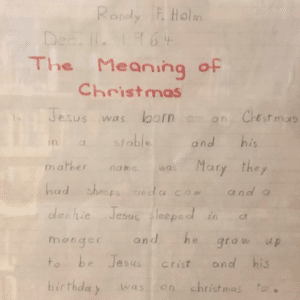 Randy F. Holm
Dec. 11. 1964
The Meaning of
Christmas
Jesus was born on Christmas
in a stable and his
mather name was Mary they
had sheeps and a cow and a
donkie Jesus sleeped in a
manger and he grow up
to be Jesus crist and his
birthday was on christmas